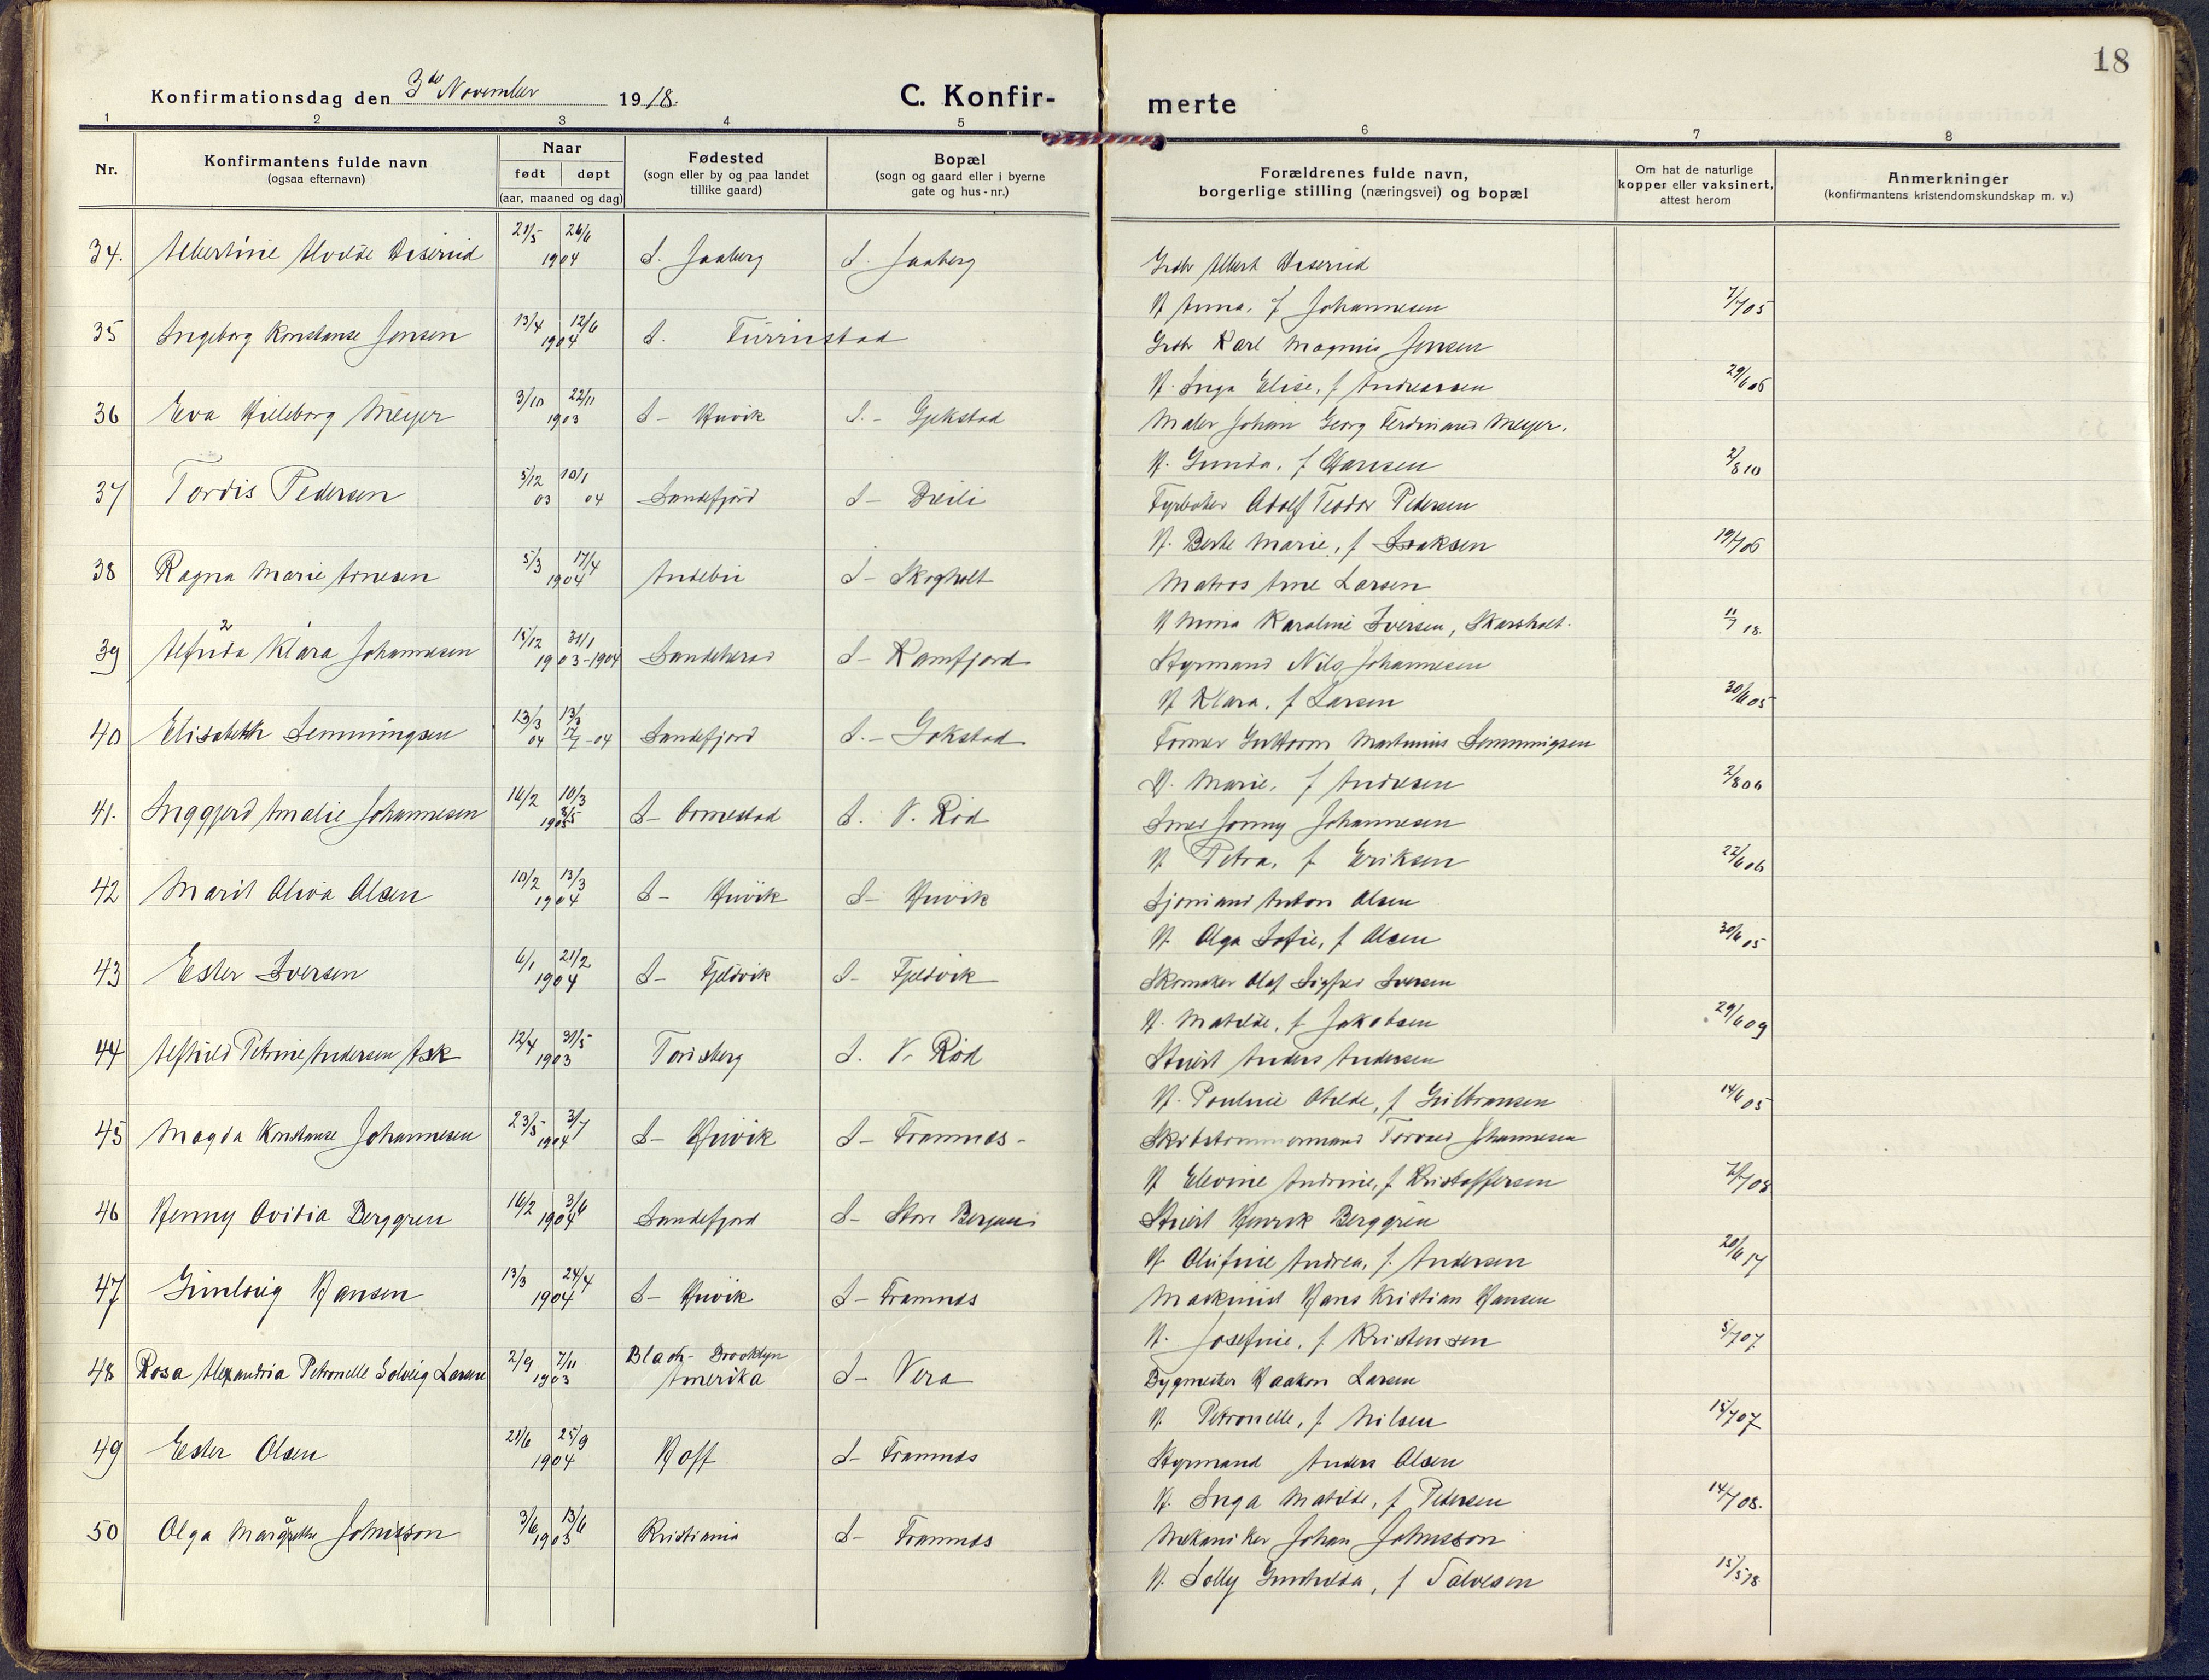 18
Konfirmationsdag den 3die November 1918. C. Konfirmerte
1 2 3 4 5 6 7 8
Nr.
Konfirmantens fulde navn
(ogsaa efternavn)
Naar
født døpt
(aar, maaned og dag)
Fødested
(sogn eller by og paa landet
tillike gaard)
Bopæl
(sogn og gaard eller i byerne
gate og hus-nr.)
Forældrenes fulde navn,
borgerlige stilling (næringsvei) og bopæl
Om hat de naturlige
kopper eller vaksinert,
attest herom
Anmerkninger
(konfirmantens kristendomskundskap m. v.)
34. Albertine Alvilde 21/5 26/6 1904 S. Jaaberg S. Jaaberg Grdbr Albert
H Anna, f Johannesen 7/7 05
35 Ingeborg Konstanse Jensen 13/4 12/6 1904 S. Furustad Grdbr Karl Magnus Jensen
H. Inga Elise, f Andreassen 29/6 06
36 Eva Hilleborg Meyer 3/10 22/11 1903 S- Huvik S.- Gjekstad Maler Johan Georg Ferdinand Meyer.
H. Gunda, f Hansen 2/8 10
37 Tordis Pedersen 5/12 03 10/1 04 Sandefjord S- Breili Fyrbøter Adolf Teodor Pedersen
H. Berte Marie, f Isaksen 19/7 06
38 Ragna Marie Arnesen 5/3 17/4 1904 Andebu S- Skogholt Matros Arne Larsen
H Mina Karoline Iversen, Skarsholt. 11/7 18.
39 Alfrida 2 Klara Johannesen 15/12 31/1 1903-1904 Sandeherad S- Kamfjord Styrmand Nils Johannesen
H Klara, f Larsen 30/6 05
40 Elisabeth Lemmingsen 13/3 04 17/7-04 Sandefjord S.- Gokstad Former Guttorm Martinius Lemmingsen
H. Marie, f Andresen 2/8 06
41. Inggjerd Amalie Johannesen 16/2 10/3 S- Ormestad S. V. Rød Smed Jonny Johannesen
H Petra, f Eriksen 22/6 06
42 Marit Oliva Olsen 10/2 13/3 1904 S- Huvik S- Huvik Sjømand Anton Olsen
H Olga Sofie, f Olsen 30/6 05
43 Ester Iversen 6/1 21/2 1904 S- Fjeldvik S- Fjeldvik Skomaker Olaf Sigfred Iversen
H. Matilde, f Jakobsen 29/6 09
44 Alfhild Petrine Andersen Ask 12/4 31/5 1903 Tønsberg S. V. Rød Stuert Anders Andersen
H. Pouline Otilde, f Gulbransen 14/6 05
45 Magda Konstanse Johannesen 23/5 3/7 1904 S- Huvik S- Framnæs- Skibstømmermand Torvald Johannesen
H Elevine Andrine, f Kristoffersen
46 Henny Ovidia Berggren 16/2 3/6 1904 Sandefjord S- Store Bergan Stuert Henrik Berggren
H Olufine Andrea, f. Andersen 20/6 17
47 Gunlaug Hansen 13/3 24/4 1904 S- Huvik S- Framnæs Maskinist Hans Kristian Hansen
H. Josefine, f Kristensen 5/7 07
48 Rosa Alexandria Petronelle Solveig Larsen 2/9 7/11 1903 Brooklyn Amerika S- Vera Bygmester Haakon Larsen
H. Petronelle, f Nilsen 15/7 07
49 Ester Olsen 21/6 25/9 1904 Hoff S- Framnæs Styrmand Anders Olsen
H. Inga Matilde, f Pedersen 14/7 08.
50 Olga Margrethe Johnsson 3/6 13/6 1903 Kristiania S- Framnæs Mekaniker Johan Johnsson
H. Solly Gunhilda, f Talvesen 15/5 18